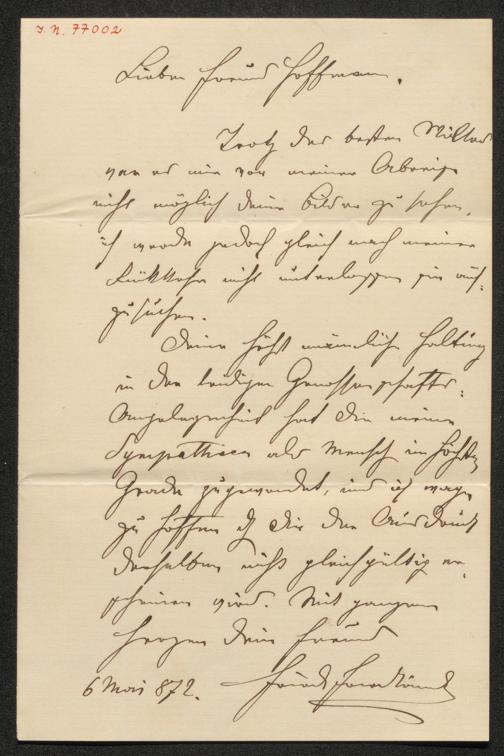 I. N. 77002
Lieber Freund Hoffmann.
Trotz des besten Willens
war es mir vor meiner Abreise
nicht möglich Deine Bilder zu sehen,
ich werde jedoch gleich nach meiner
Rückkehr nicht unterlassen sie auf-
zusuchen.
Deine höchst männliche Haltung
in der leidigen Genossenschafts-
Angelegenheit hat Dir meine
Sympathieen als Mensch im höchsten
Grade zugewendet, und ich wage
zu hoffen daß Dir der Ausdruck
derselben nicht gleichgültig er-
scheinen wird. Mit ganzem
Herzen Dein Freund
6 Mai 872.